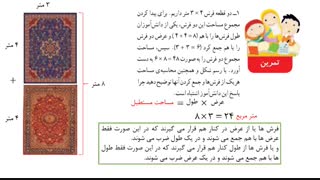 ۱ـ دو قطعه فرش ۴ × ۳ متر داریم. برای پیدا کردن
مجموع مساحت این دو فرش، یکی از دانش‌آموزان
طول فرش‌ها را با هم (۸ = ۴ + ۴) و عرض دو فرش
را با هم جمع کرد (۶ = ۳ + ۳). سپس، مساحت
دو فرش را به صورت ۴۸ = ۸ × ۶ به دست
آورد. با رسم شکل و همچنین محاسبه‌ی مساحت
هر فرش و جمع کردن آنها توضیح دهید چرا
پاسخ این دانش‌آموز نادرست است.
عرض × طول = مساحت مستطیل
۸×۳ = ۲۴ متر مربع
فرش ها یا از عرض در کنار هم قرار می گیرند که در این صورت فقط
عرض ها با هم جمع می شوند و در یک طول ضرب می شوند.
و یا فرش ها از طول کنار هم قرار می گیرند که در این صورت فقط طول
ها با هم جمع می شوند و در یک عرض ضرب می شوند.
تمرین
۳ متر
۴ متر
+
۸ متر
۴ متر